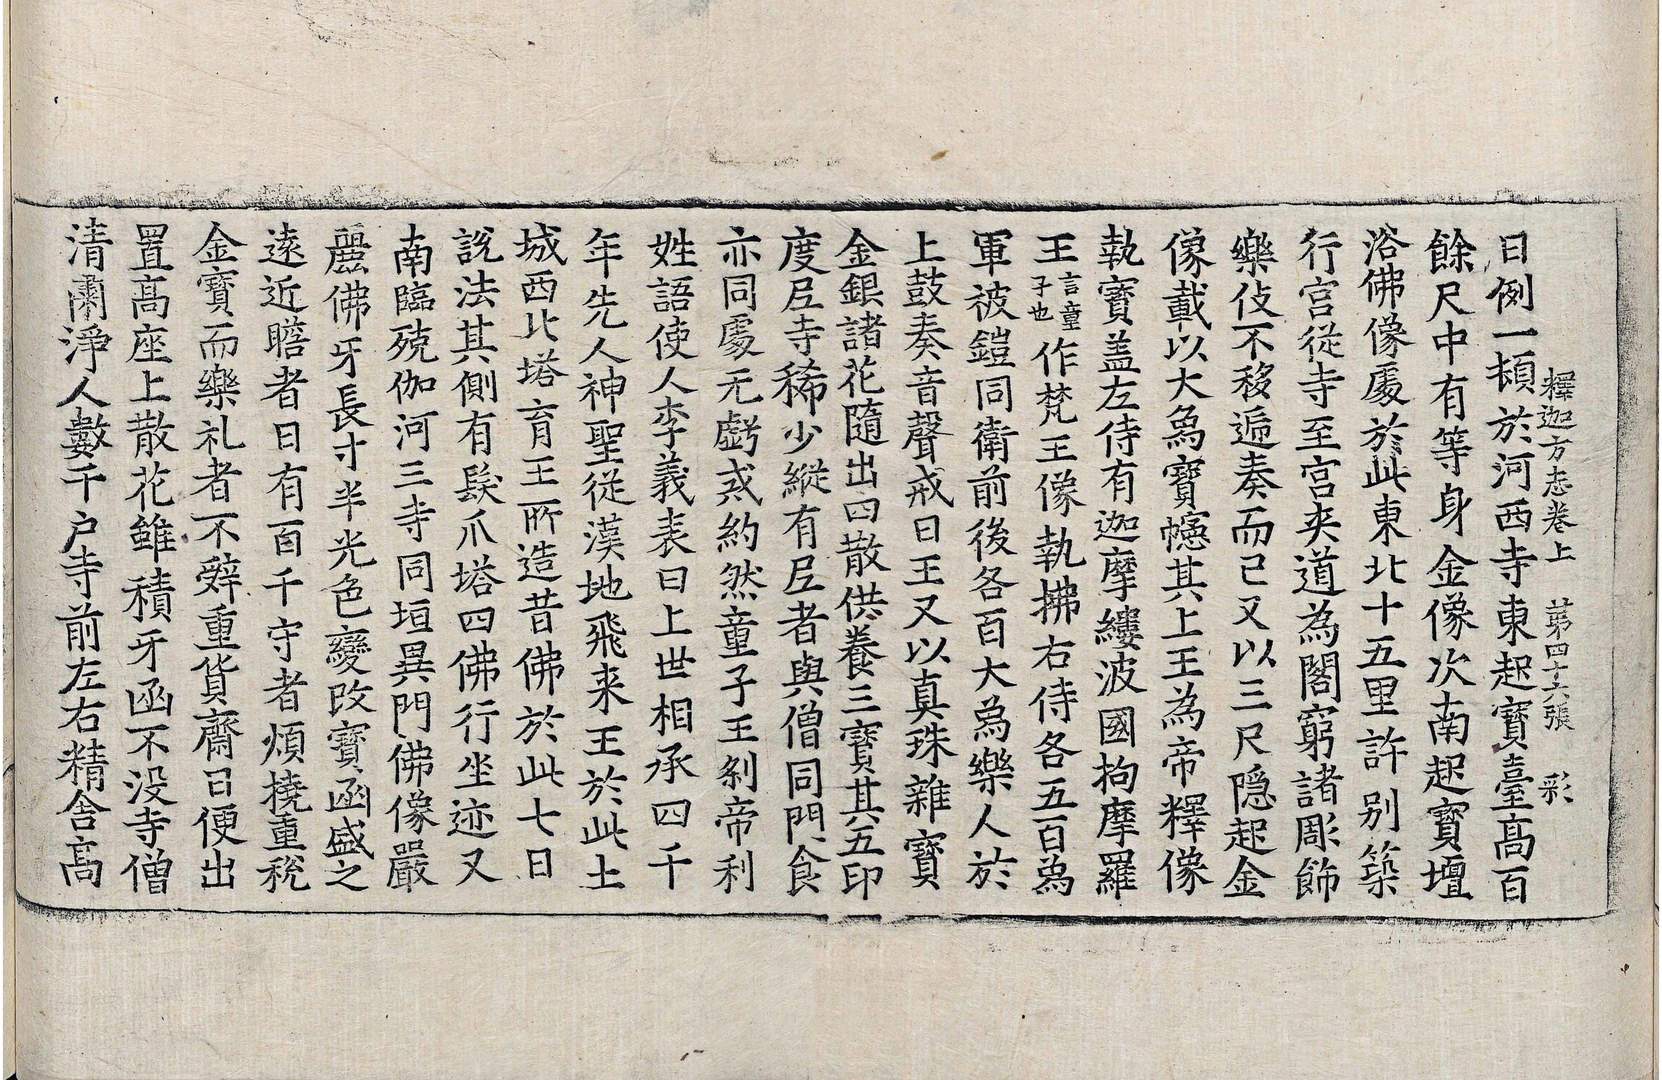 釋迦方志卷上 第四十六張 彩
日例一頓於河西寺東起寶臺高百
餘尺中有等身金像次南起寶壇
浴佛像處於此東北十五里許別築
行宮從寺至宮夾道為閣窮諸彫飾
樂伎不移遞奏而已又以三尺隱起金
像載以大為寶幰其上王為帝釋像
執寶盖左侍有迦摩縷波國拘摩羅
王言童子也作梵王像執拂右侍各五百為
軍被鎧同衛前後各百大為樂人於
上鼓奏音聲戒日王又以真珠雜寶
金銀諸花隨出四散供養三寶其五印
度𡰱寺稀少縱有𡰱者與僧同門食
亦同處无虧戒約然童子王剎帝利
姓語使人李義表曰上世相承四千
年先人神聖從漢地飛来王於此土
城西北塔育王所造昔佛於此七日
說法其側有髮爪塔四佛行坐迹又
南臨殑伽河三寺同垣異門佛像嚴
麗佛牙長寸半光色變改寶函盛之
遠近瞻者日有百千守者煩撓重稅
金寶而樂礼者不辝重貨齋日便出
置高座上散花雖積牙函不没寺僧
清肅淨人數千户寺前左右精舍高